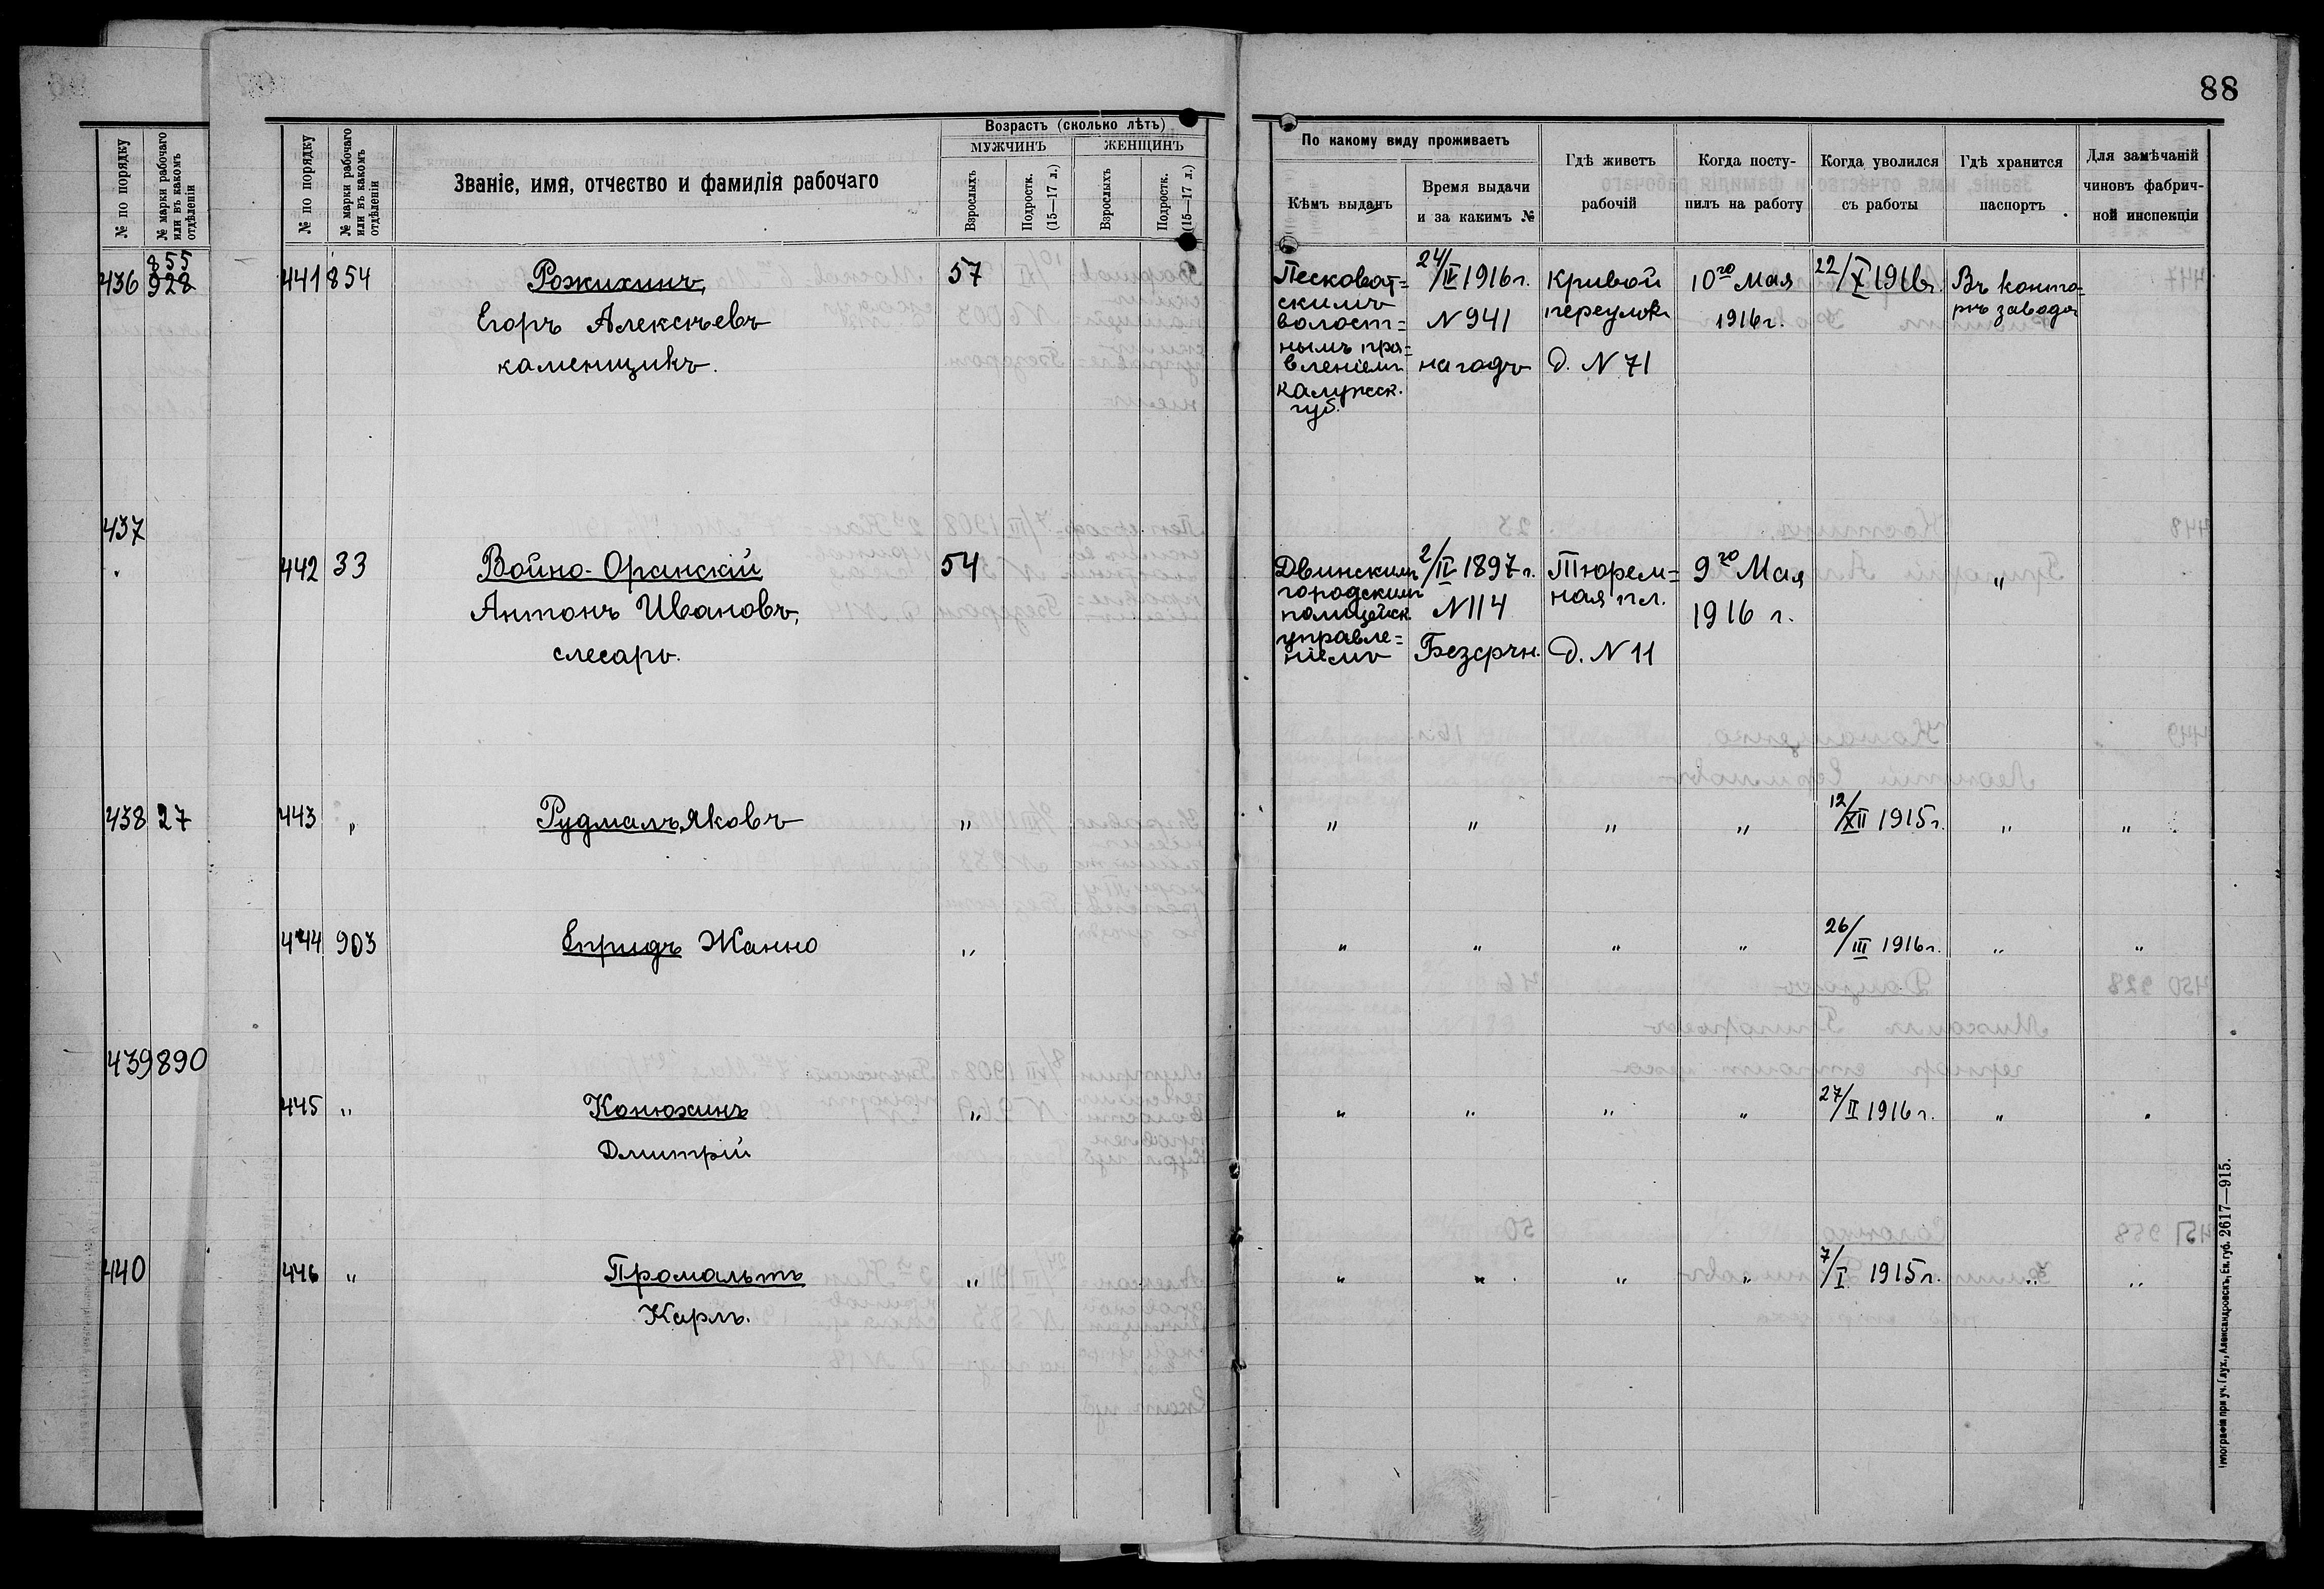 88
№ по порядку
№ марки рабочаго или въ какомъ отдѣленіи
436
855
928
437
438 27
439 890
440
№ по порядку
№ марки рабочаго или въ какомъ отдѣленіи
Званіе, имя, отчество и фамилія рабочаго
Возрастъ (сколько лѣтъ)
МУЖЧИНЪ
ЖЕНЩИНЪ
Взрослыхъ
Подростк. (15—17 л.)
Взрослыхъ
Подростк. (15—17 л.)
По какому виду проживаетъ
Кѣмъ выданъ
Время выдачи
и за какимъ №
Гдѣ живетъ
рабочій
Когда посту-
пилъ на работу
Когда уволился
съ работы
Гдѣ хранится
паспортъ
Для замѣчаній
чиновъ фабрич-
ной инспекціи
441 854
Рожихинъ,
Егоръ Алексѣевъ
каменщикъ.
57
Песковат=
скимъ
волост=
нымъ пра=
вленіемъ
Калужск.
губ.
24/IV 1916 г.
N 941
на годъ
Кривой
переулокъ
д. N 71
10го Мая
1916 г.
22/X 1916 г.
Въ конто=
рѣ завода
442 33
Войно-Оранскій
Антонъ Ивановъ,
слесарь.
54
Двинскимъ
городскимъ
полицейск.
управле=
ніемъ
2/IV 1897 г.
N 114
Безсрчн.
Тюрем=
ная пл.
д. N 11
9го Мая
1916 г.
"
443 "
Рудмалъ, Яковъ
" " " " "
12/XII 1915 г.
" "
444 903
Епридъ Жанно
" " " " "
26/III 1916 г.
" "
445 "
Конюхинъ
Дмитрій
" " " " "
27/II 1916 г.
" "
446 "
Промальтъ
Карлъ.
" " " " "
7/I 1915 г.
" "
Типографія при уч. Глух., Александровскъ, Ек. губ. 2617—915.